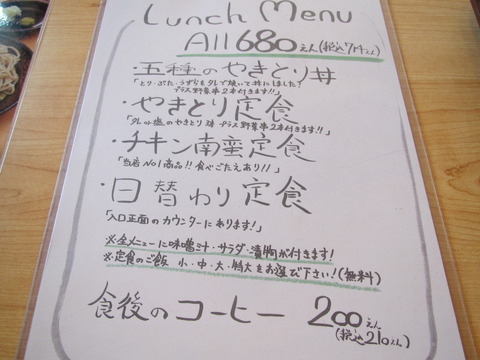 Lunch Menu
All 680えん(税込714えん)
・五種のやきとり丼
「とり・ぶた・うずらをタレで焼いて丼にしました!
プラス野菜串2本付きます!!」
・やきとり定食
「タレor塩のやきとり3本 プラス野菜串2本付きます!!」
・チキン南蛮定食
「当店No1商品!!食べごたえあり!!」
・日替わり定食
「入口正面のカウンターにあります!」
※全メニューに味噌汁・サラダ・漬物が付きます!
※定食のご飯 小・中・大・特大をお選び下さい!(無料)
食後のコーヒー 200えん
(税込210えん)